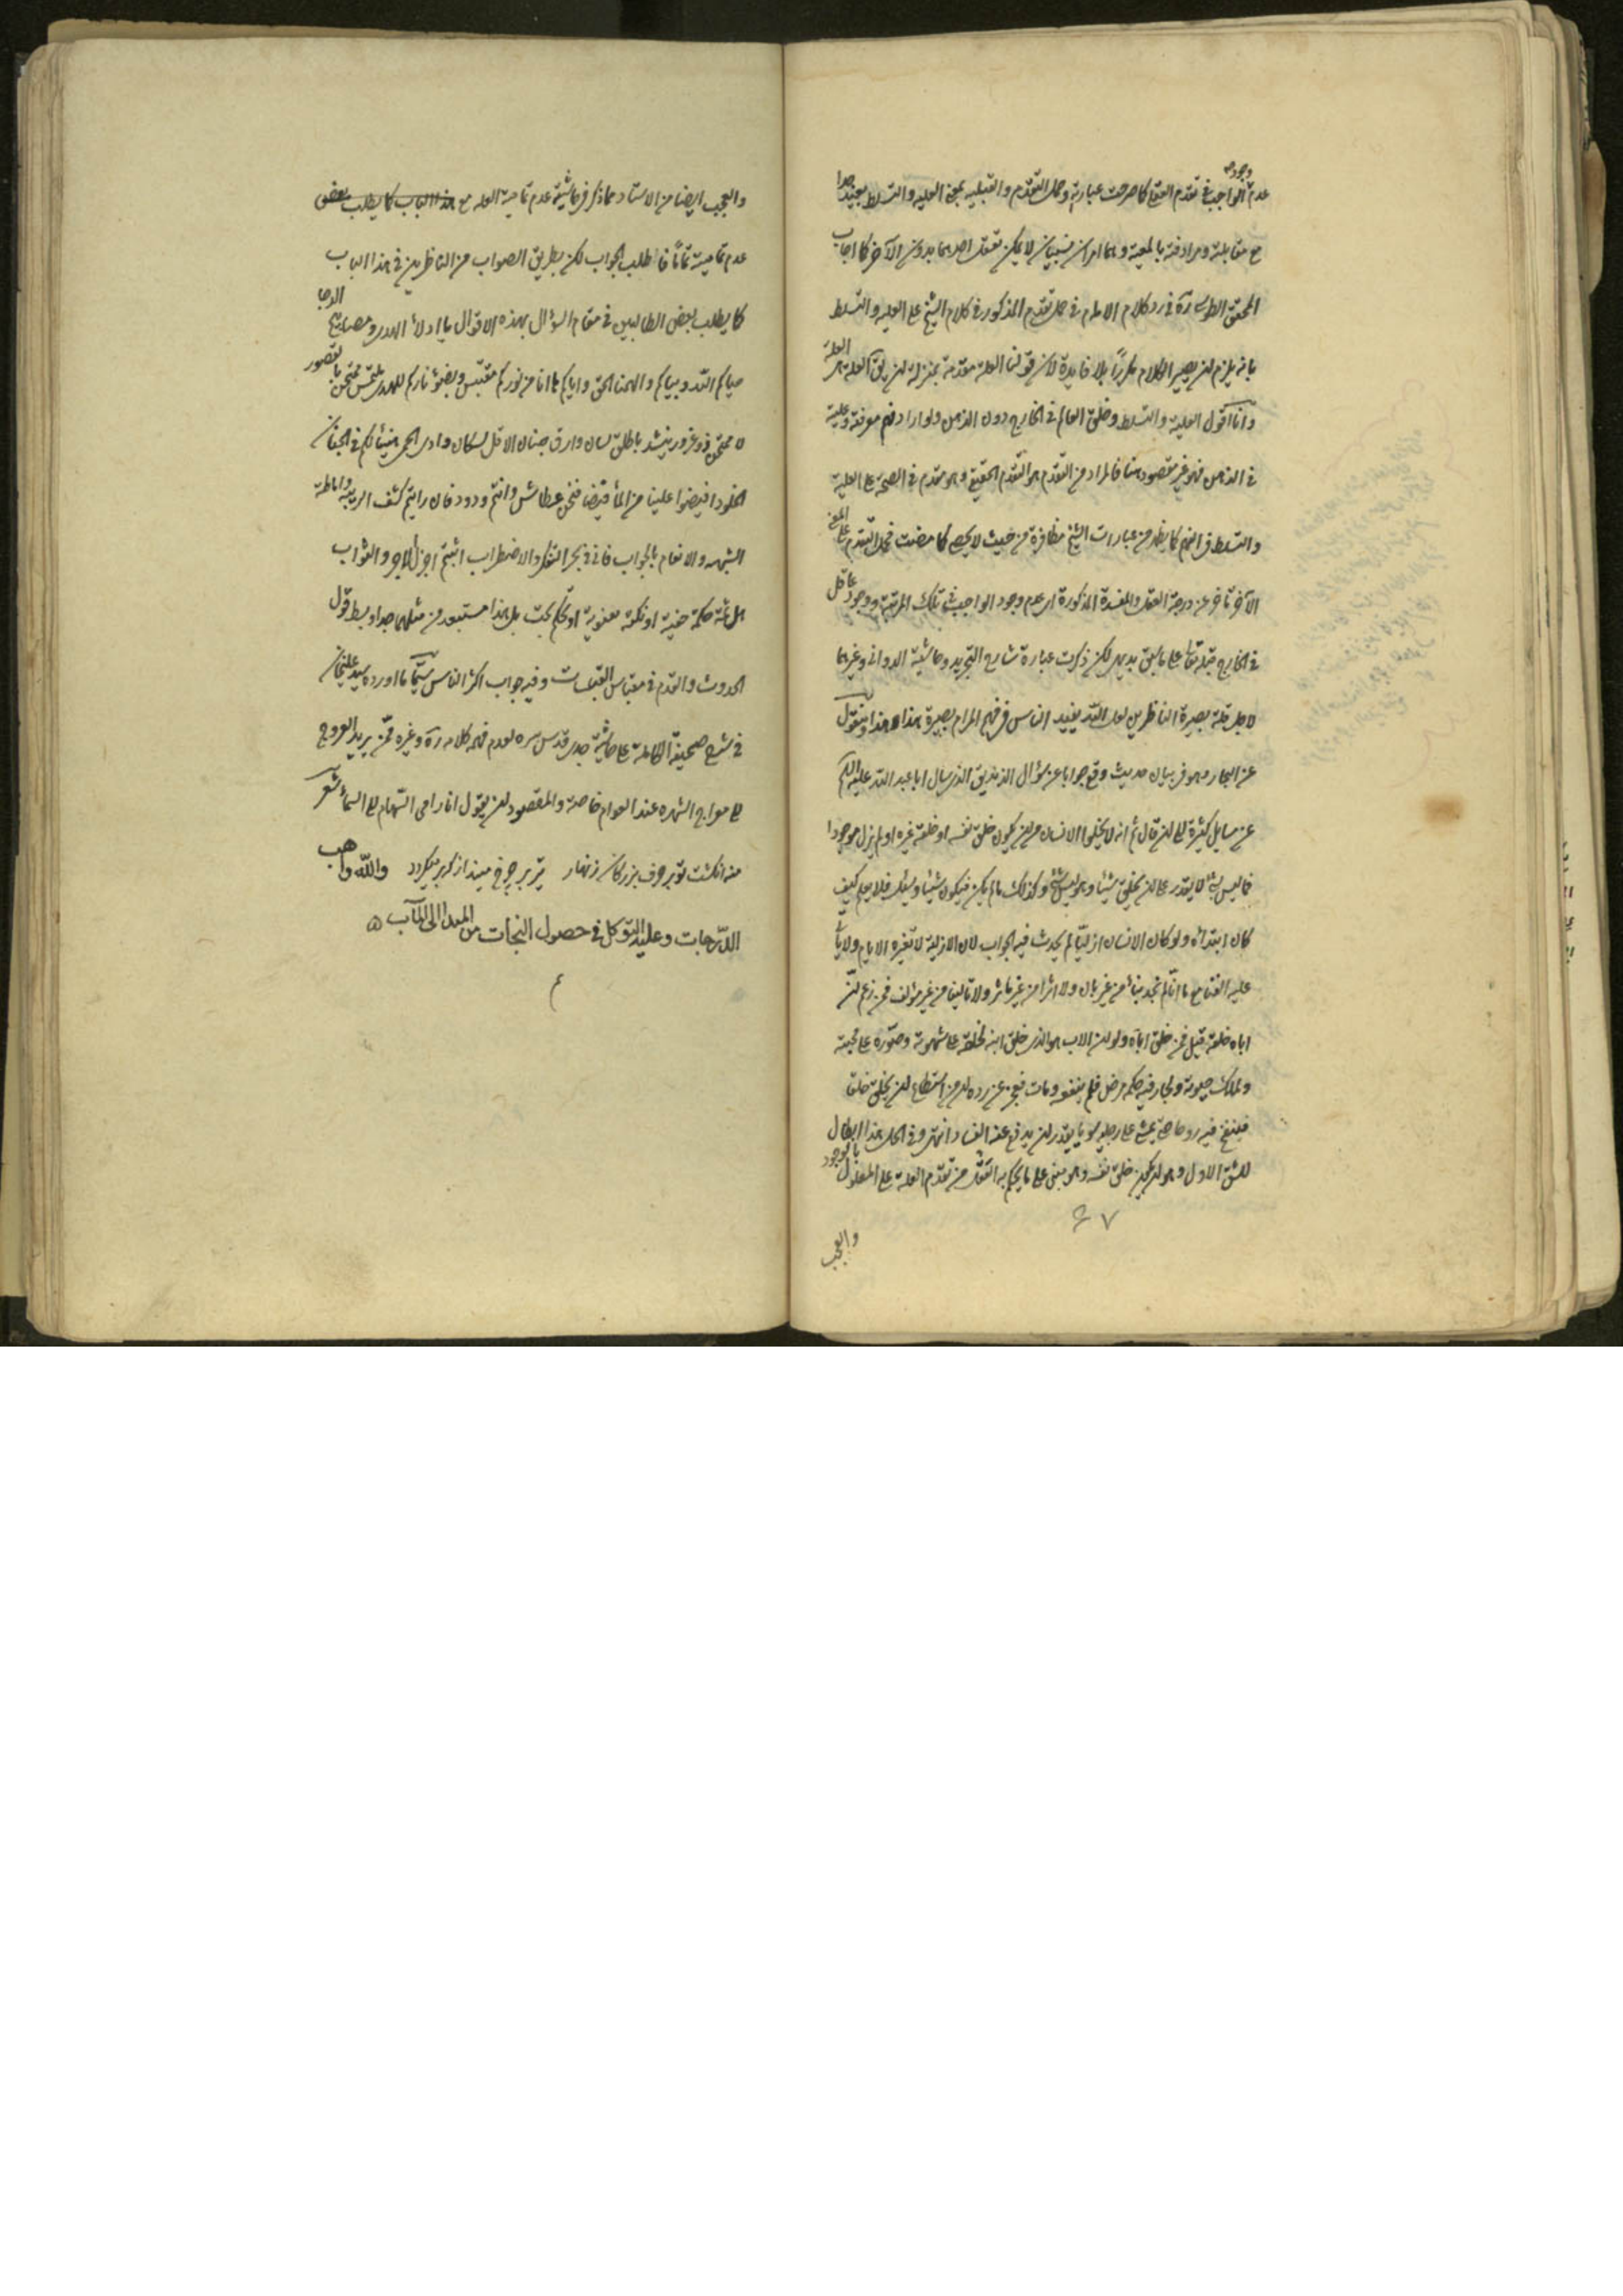 عدم الواجب في تقدم العقل كما صرحت عبارته وحمل التقدم والقبلية بمعنى العلية والتسلط بعيد جدا
وجوده
مع مقابلته ومرادفته بالمعية وهما امران نسبيان لا يمكن تعقل احدهما بدون الآخر كما اجاب
المحقق الطوسي ره في رد كلام الامام في حمل تقدم المذكور في كلام الشيخ على العلية والتسلط
بانه يلزم ان يصير الكلام مكررا بلا فايدة لان قولنا العلة متقدمة بمنزلة ان يق العلة علة
وانا اقول العلية والتسلط وخلق العالم في الخارج دون الذهن ولو اراد معرفة وعلية
في الذهن فهو غير مقصود هنا فالمراد من التقدم هو التقدم الحقيقي وهو مقدم في الصحة على العلية
والتسلط كما يظهر من عبارات الشيخ من حيث لا يحصى كما مضت فحمل التقدم على المعنى
الآخر تأخر عن درجة العقل والمفسدة المذكورة اي عدم وجود الواجب في تلك المرتبة ووجود
في الخارج على ما سبق بديهي لكن ذكرت عبارة شارح التجريد وحاشية الدواني وغيرهما
لاجل قلة بصيرة الناظرين لعل الله يفيد الناس في فهم المرام بصيرة هذا
عن البحار وهو في بيان حديث وقع جوابا عن سؤال الزنديق الذي سأل ابا عبد الله عليه السلام
عن مسايل كثيرة الى ان قال ثم انه لا يخلو الانسان من ان يكون خلق نفسه او خلقه غيره او لم يزل موجودا
فما ليس بشئ لا يقدر على ان يخلق شيئا وهو ليس بشئ وكذلك ما لم يكن فيكون شيئا يسئل فلا يعلم كيف
كان ابتدائه ولو كان الانسان ازليا لم يحدث فيه الجواب لان الازلي لا تغيره الايام ولا يأتي
عليه الفناء مع ما انا لم نجد بناء من غير بان ولا اثرا من غير مؤثر ولا تاليفا من غير مؤلف فمن زعم ان
اباه خلقه قيل فمن خلق اباه ولو ان الاب هو الذي خلق ابنه لخلقه على شهوته وصوره على محبته
ولملك حيوته ولجاز فيه حكمه مرض فلم ينفعه ومات فعجز عن رده ان من استطاع ان يخلق خلقا
فينفخ فيه روحا حتى يمشي على رجليه سويا يقدر ان يدفع عنه الفساد انتهى وفي هذا ابطال
للشق الاول وهو ان يكون خلق نفسه وهو مبني على ما يحكم به العقل من تقدم العلة على المعلول بالوجود
٤٧
والعجب
والعجب ايضا من الاستاد مما ذكر في حاشيته عدم تمامية العلة مع هذا الباب كما يطلب بعض
عدم تمامية فاطلب الجواب لكن بطريق الصواب من الناظرين في هذا الباب
كما يطلب بعض الطالبين في مقام السؤال بهذه الاقوال يا ادلاء الهدى ومصابيح الدجى
حياكم الله وبياكم والهمنا الحق واياكم ها انا من نوركم مقتبس وبضوء ناركم للهدى ملتمس ممتحن بالقصور
لا ممتحن ذو غرور ينشد باطلق لسان وارق جنان الا قل لسكان وادي الحمى هنيئا لكم في الجنان
الخلود افيضوا علينا من الماء فيضا فنحن عطاش وانتم ورود فان رايتم كشف الريبة واماطة
الشبهة والانعام بالجواب فاني في بحر التفكر والاضطراب اثبتم اجزل الاجر والثواب
هل ثمة حكمة خفية او نكتة معنوية او تحكم بحت بل هذا مستبعد من مثلهما جدا وبسط قول
الحدوث والقدم في مقباس القبسات وفيه جواب اكثر الناس سيما ما اورده سيد عليخان
في شرح صحيفة الكاملة على حاشية جدي قدس سره لعدم فهم كلامه ره وغيره ممن يريد العروج
الى معراج الشهرة عند العوام خاصة والمقصود ان يقول انا رامي السهام الى السماء شعر
منه انگشت تو بر حرف بزرگان زنهار تير بر چرخ مينداز كه بر ميگردد والله واهب
الدرجات وعليه التوكل في حصول النجات من المبدا الى المآب
م